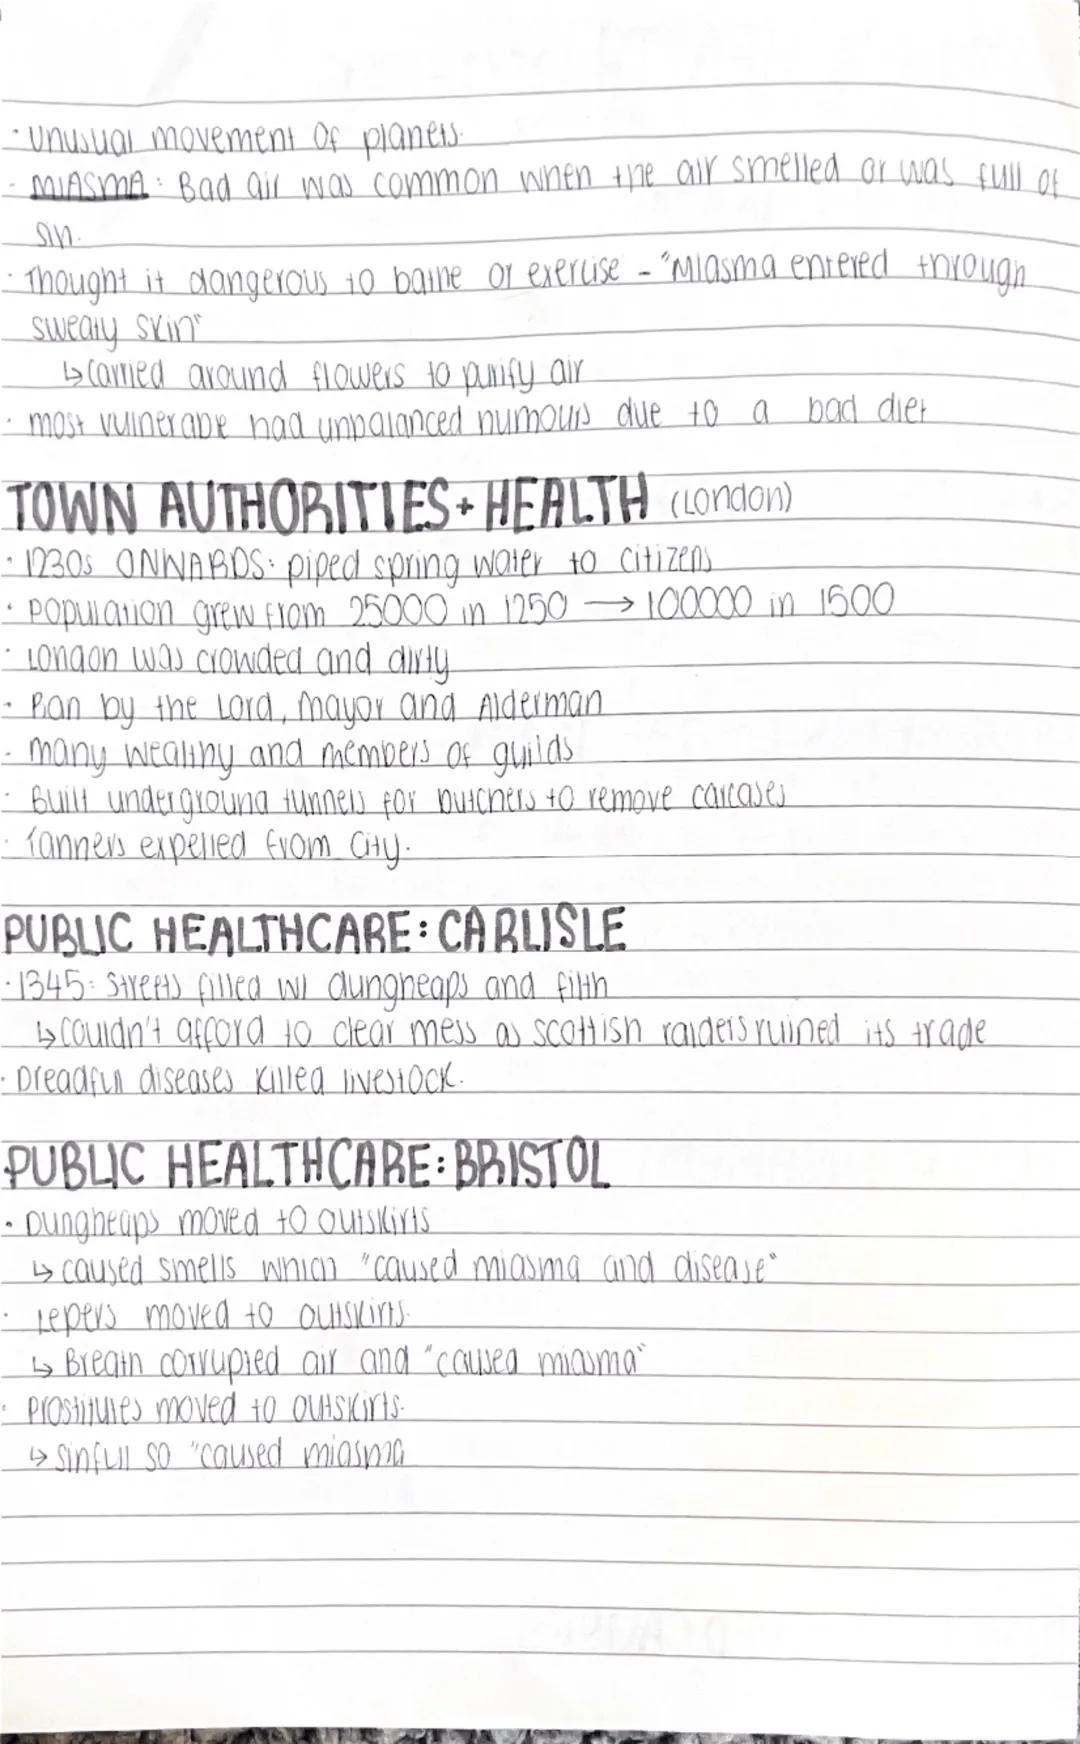 · Unusual movement of planets.
- MIASMA: Bad air was common when the air smelled or was full of
sin.
· Thought it dangerous to bathe or exercise - "Miasma entered through
sweaty skin"
↳ Carried around flowers to purify air
· most vulnerable had unbalanced humours due to a bad diet
TOWN AUTHORITIES + HEALTH (London)
· 1230s ONWARDS: piped spring water to citizens
· Population grew from 25000 in 1250 → 100000 in 1500
· London was crowded and dirty
· Ran by the Lord, mayor and Alderman
· many wealthy and members of guilds
· Built underground tunnels for butchers to remove carcases
· Tanners expelled from City.
PUBLIC HEALTHCARE: CARLISLE
· 1345: Streets filled w/ dungheaps and filth
↳ Couldn't afford to clear mess as scottish raiders ruined its trade
· Dreadful diseases killed livestock.
PUBLIC HEALTHCARE: BRISTOL
· Dungheaps moved to outskirts
↳ caused smells which "caused miasma and disease"
· Lepers moved to outskirts.
↳ Breath corrupted air and "caused miasma"
· Prostitutes moved to outskirts.
↳ sinful so "caused miasma